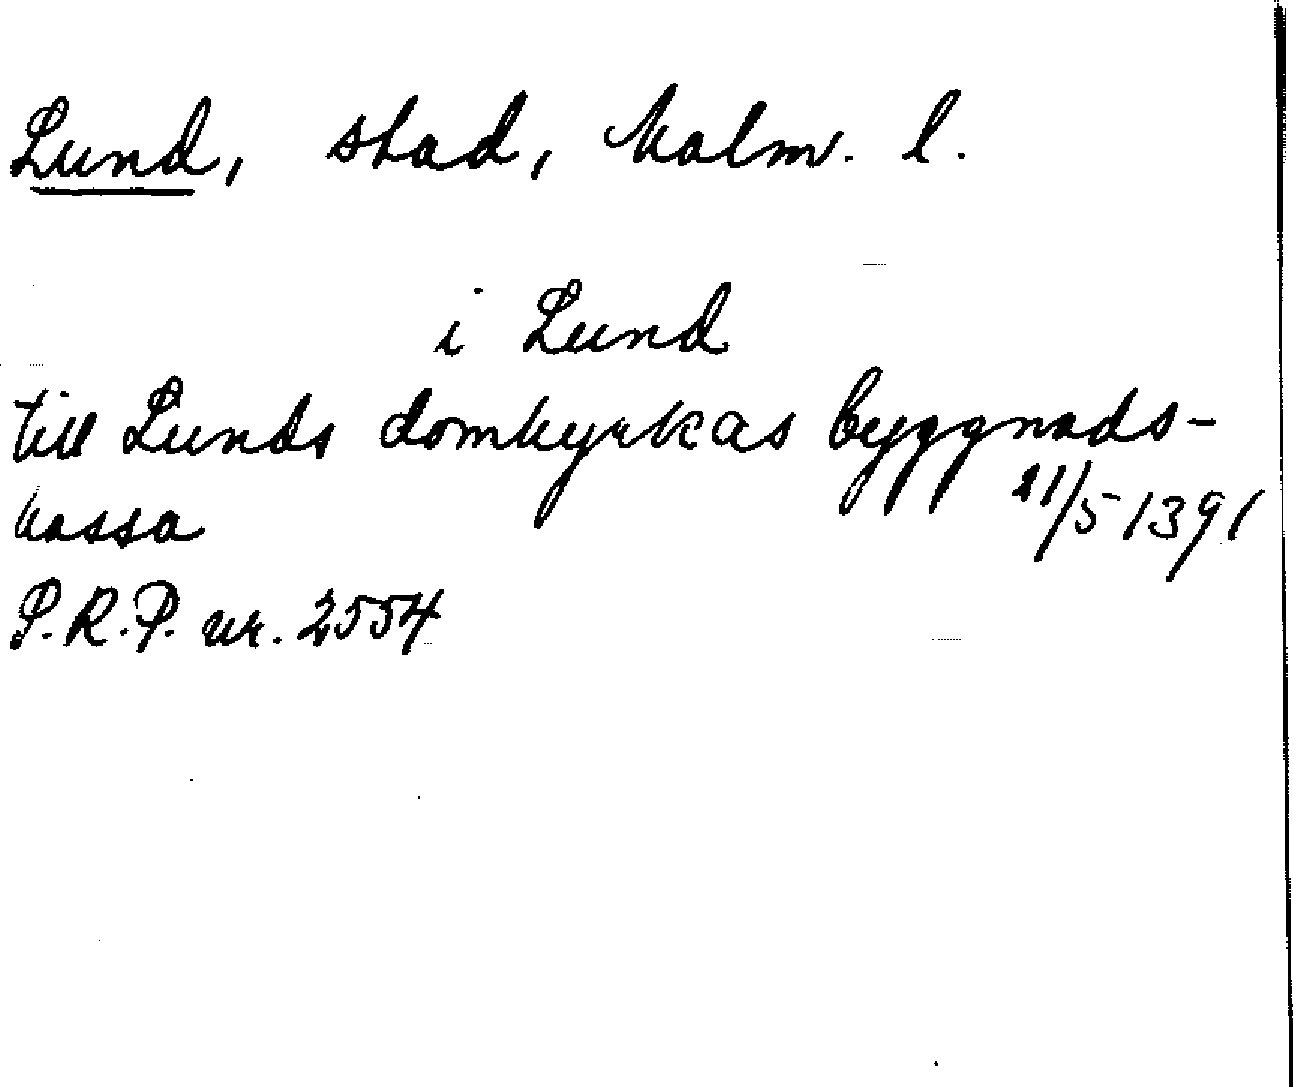 Lund, stad, Malm. l.
i Lund
till Lunds domkyrkas byggnads-
kassa 21/5 1391
S.R.P. nr. 2554